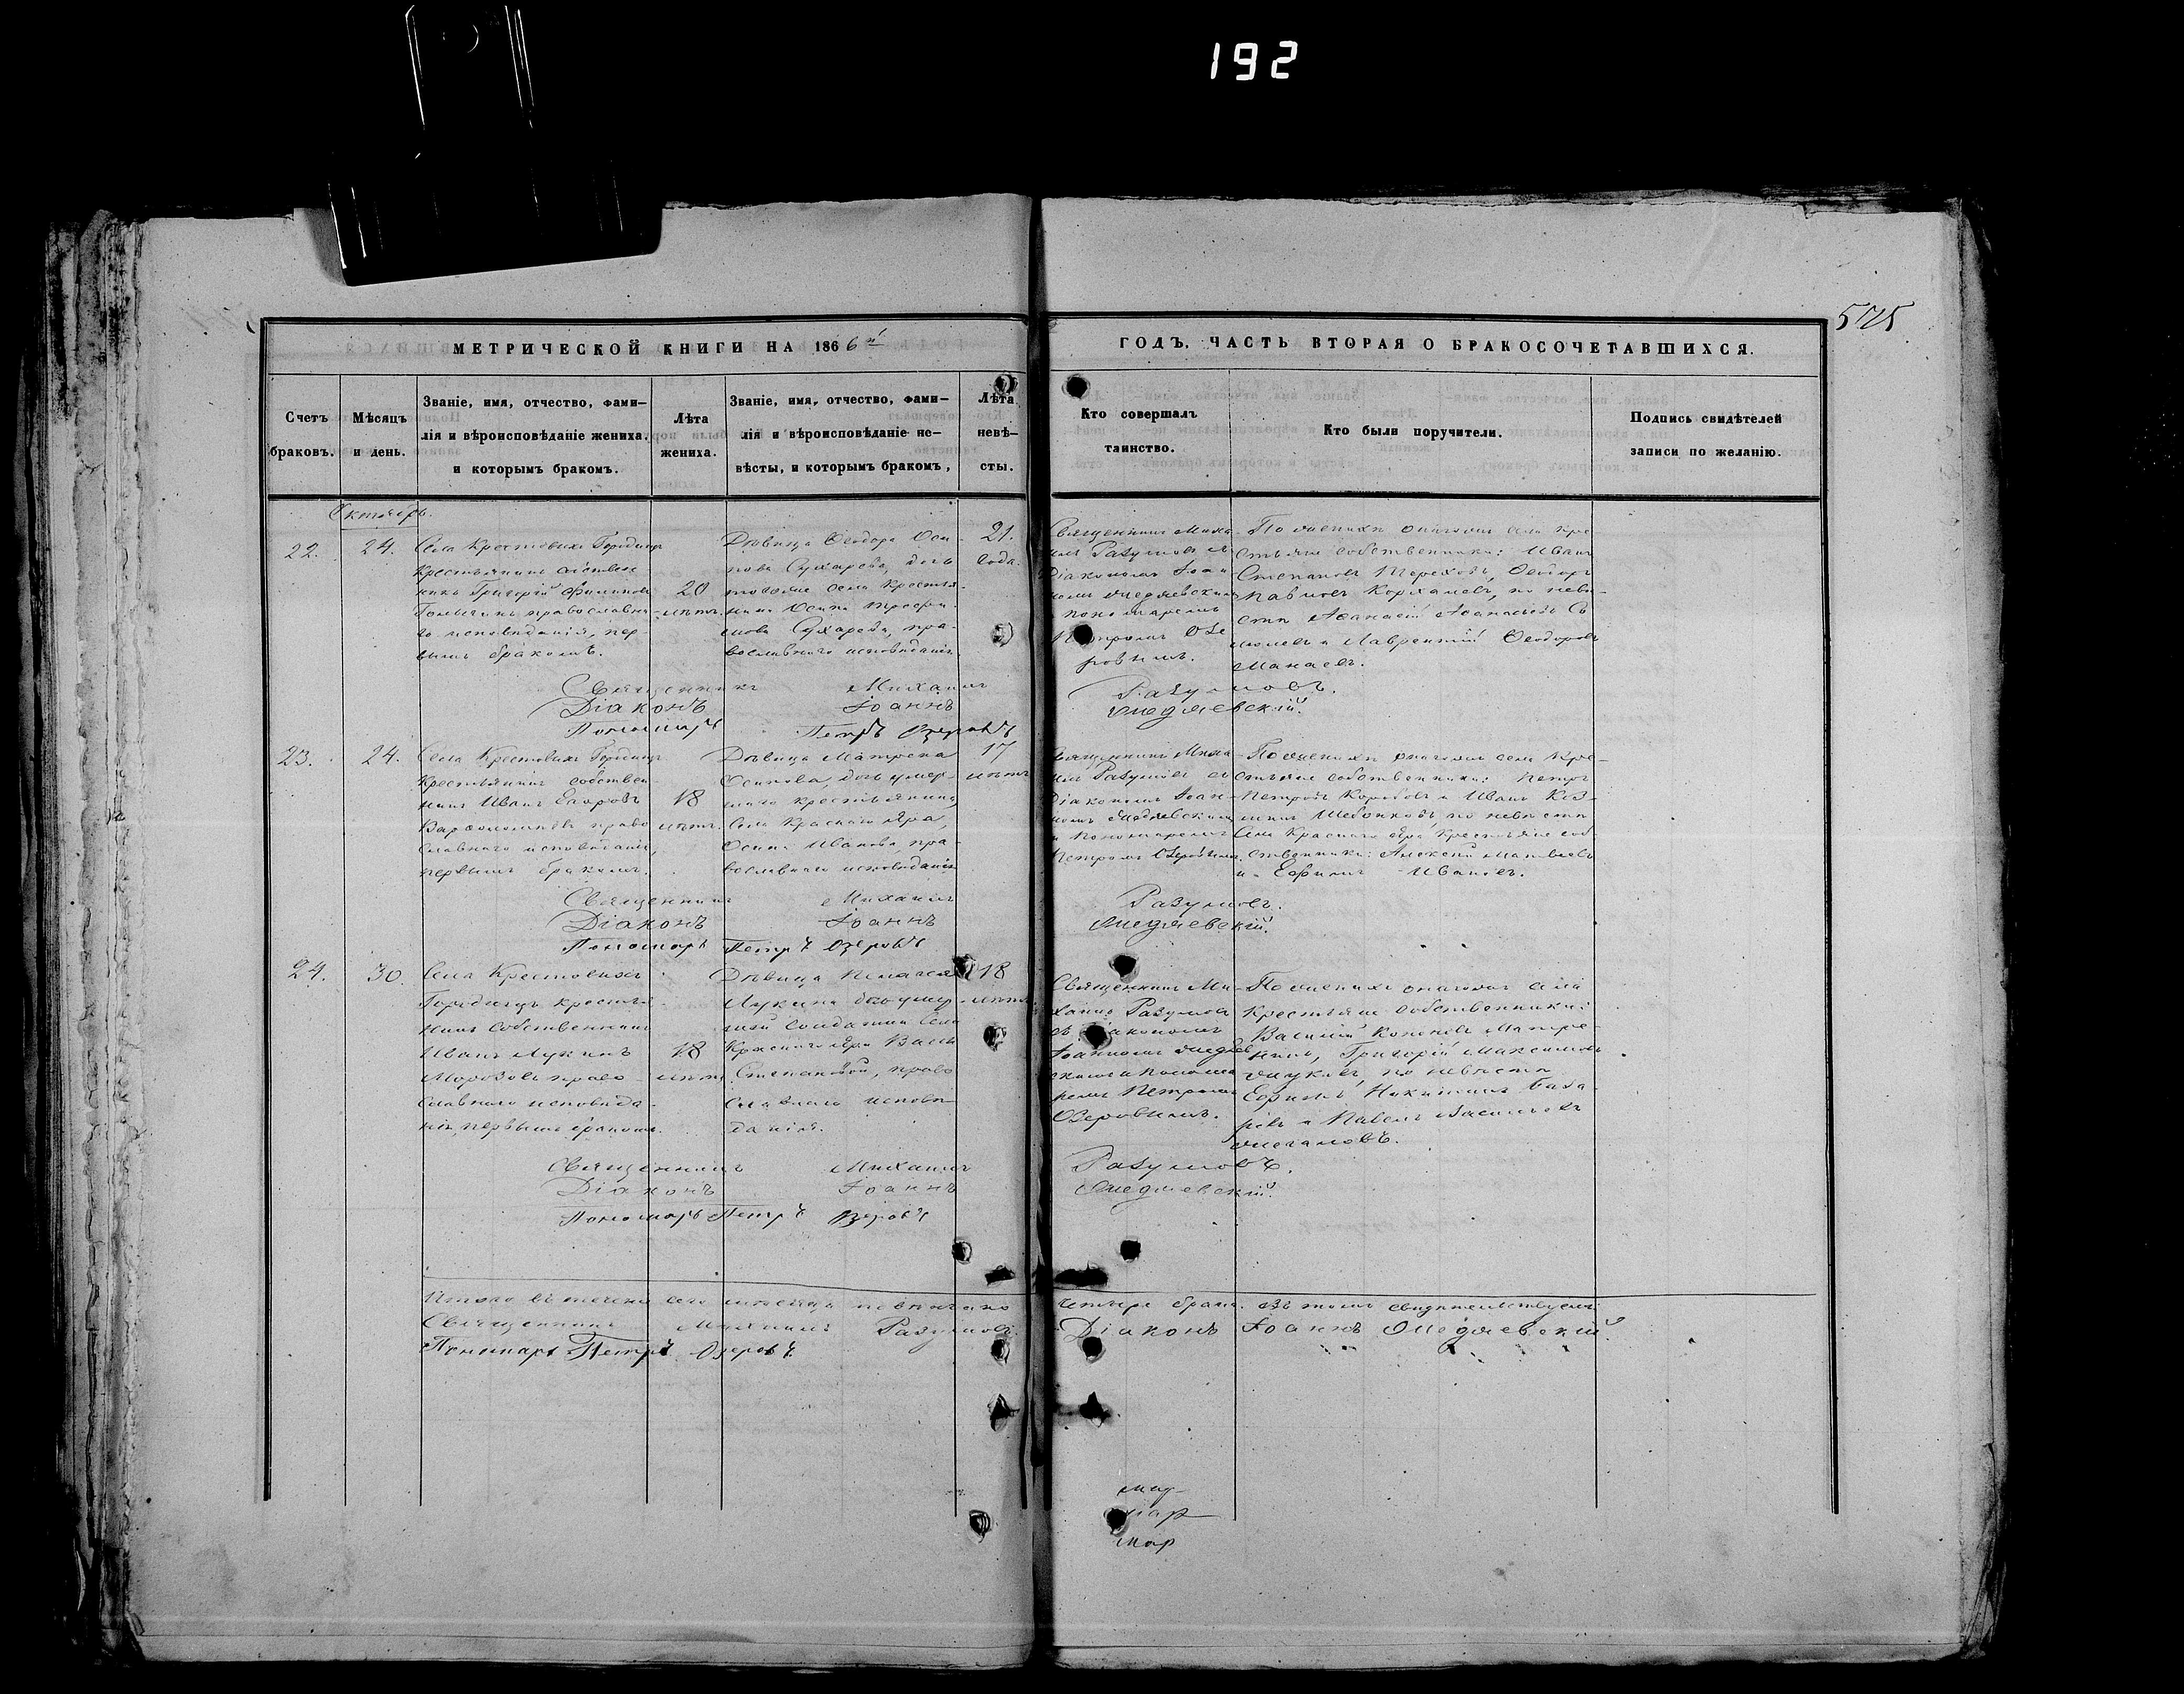 192
575
МЕТРИЧЕСКОЙ КНИГИ НА 1866й
ГОДЪ, ЧАСТЬ ВТОРАЯ О БРАКОСОЧЕТАВШИХСЯ.
Счетъ
браковъ.
Мѣсяцъ
и день.
Званіе, имя, отчество, фами-
лія и вѣроисповѣданіе жениха,
и которымъ бракомъ.
Лѣта
жениха.
Званіе, имя, отчество, фами-
лія и вѣроисповѣданіе не-
вѣсты, и которымъ бракомъ,
Лѣта
невѣ-
сты.
Кто совершалъ
таинство.
Кто были поручители.
Подпись свидѣтелей
записи по желанію.
Октябрь.
22.
24.
Села Крестовыхъ Городищъ
крестьянинъ собствен-
никъ Григорій Филиповъ
православна-
го исповѣданія, пер-
вымъ бракомъ.
20
лѣтъ.
Дѣвица Ѳеодора Оси-
пова Сухарева, дочь
тогоже села крестья-
нина Осипа Трофи-
мова Сухарева, пра-
вославнаго исповѣданія.
21.
года.
Священникъ Миха-
илъ Разумовъ съ
Діакономъ Іоан-
номъ
пономаремъ
Петромъ Озе
ровымъ.
По женихѣ означен. села кре-
стьяне собственники: Иванъ
Степановъ Тереховъ, Ѳеодоръ
Павловъ Коржавовъ, по невѣ-
стѣ Аѳанасій Аѳанасьевъ
и Лаврентій Ѳеодоровъ
Манаевъ.
Священникъ Михаилъ Разумовъ.
Діаконъ Іоаннъ
Пономарь Петръ Озеровъ
23.
24.
Села Крестовыхъ Городищъ
крестьянинъ собствен-
никъ Иванъ Егоровъ
Варѳоломеевъ право
славнаго исповѣданія,
первымъ бракомъ.
18
лѣтъ.
Дѣвица Матрона
Осипова, дочь умер-
шаго крестьянина
Села Краснаго Яра,
Осипа Иванова, пра-
вославнаго исповѣданія.
17
лѣтъ
Священникъ Миха
илъ Разумовъ съ
Діакономъ Іоан-
номъ
и пономаремъ
Петромъ Озеровымъ.
По женихѣ означен. села кре-
стьяне собственники: Петръ
Петровъ Коробовъ и Иванъ Коз-
минъ по невѣстѣ
Села Краснаго Яра крестьяне соб-
ственники: Алексѣй Матвѣевъ
и Ефимъ Ивановъ.
Священникъ Михаилъ Разумовъ.
Діаконъ Іоаннъ
Пономарь Петръ Озеровъ
24.
30.
Села Крестовыхъ
Городищъ крестья-
нинъ собственникъ
Иванъ Лукинъ
Морозовъ право-
славнаго исповѣда-
нія, первымъ бракомъ.
18
лѣтъ
Дѣвица Пелагея
Лукина дочь умер-
шей солдатки Села
Краснаго Яра Васы
Степановой, право
славнаго исповѣ-
данія.
18
лѣтъ.
Священникъ Ми-
хаилъ Разумовъ
съ Діакономъ
Іоанномъ
скимъ и понома
ремъ Петромъ
Озеровымъ.
По женихѣ означен. села
крестьяне собственники:
Василій Кононовъ
Григорій Максимовъ
по невѣстѣ
Ефимъ Никитинъ
и Павелъ Васильевъ
Священникъ Михаилъ Разумовъ.
Діаконъ Іоаннъ
Пономарь Петръ Озеровъ
Итого въ теченіе сего мѣсяца повѣнчано четыре брака. Въ томъ свидѣтельствуемъ
Священникъ Михаилъ Разумовъ. Діаконъ Іоаннъ
Пономарь Петръ Озеровъ.